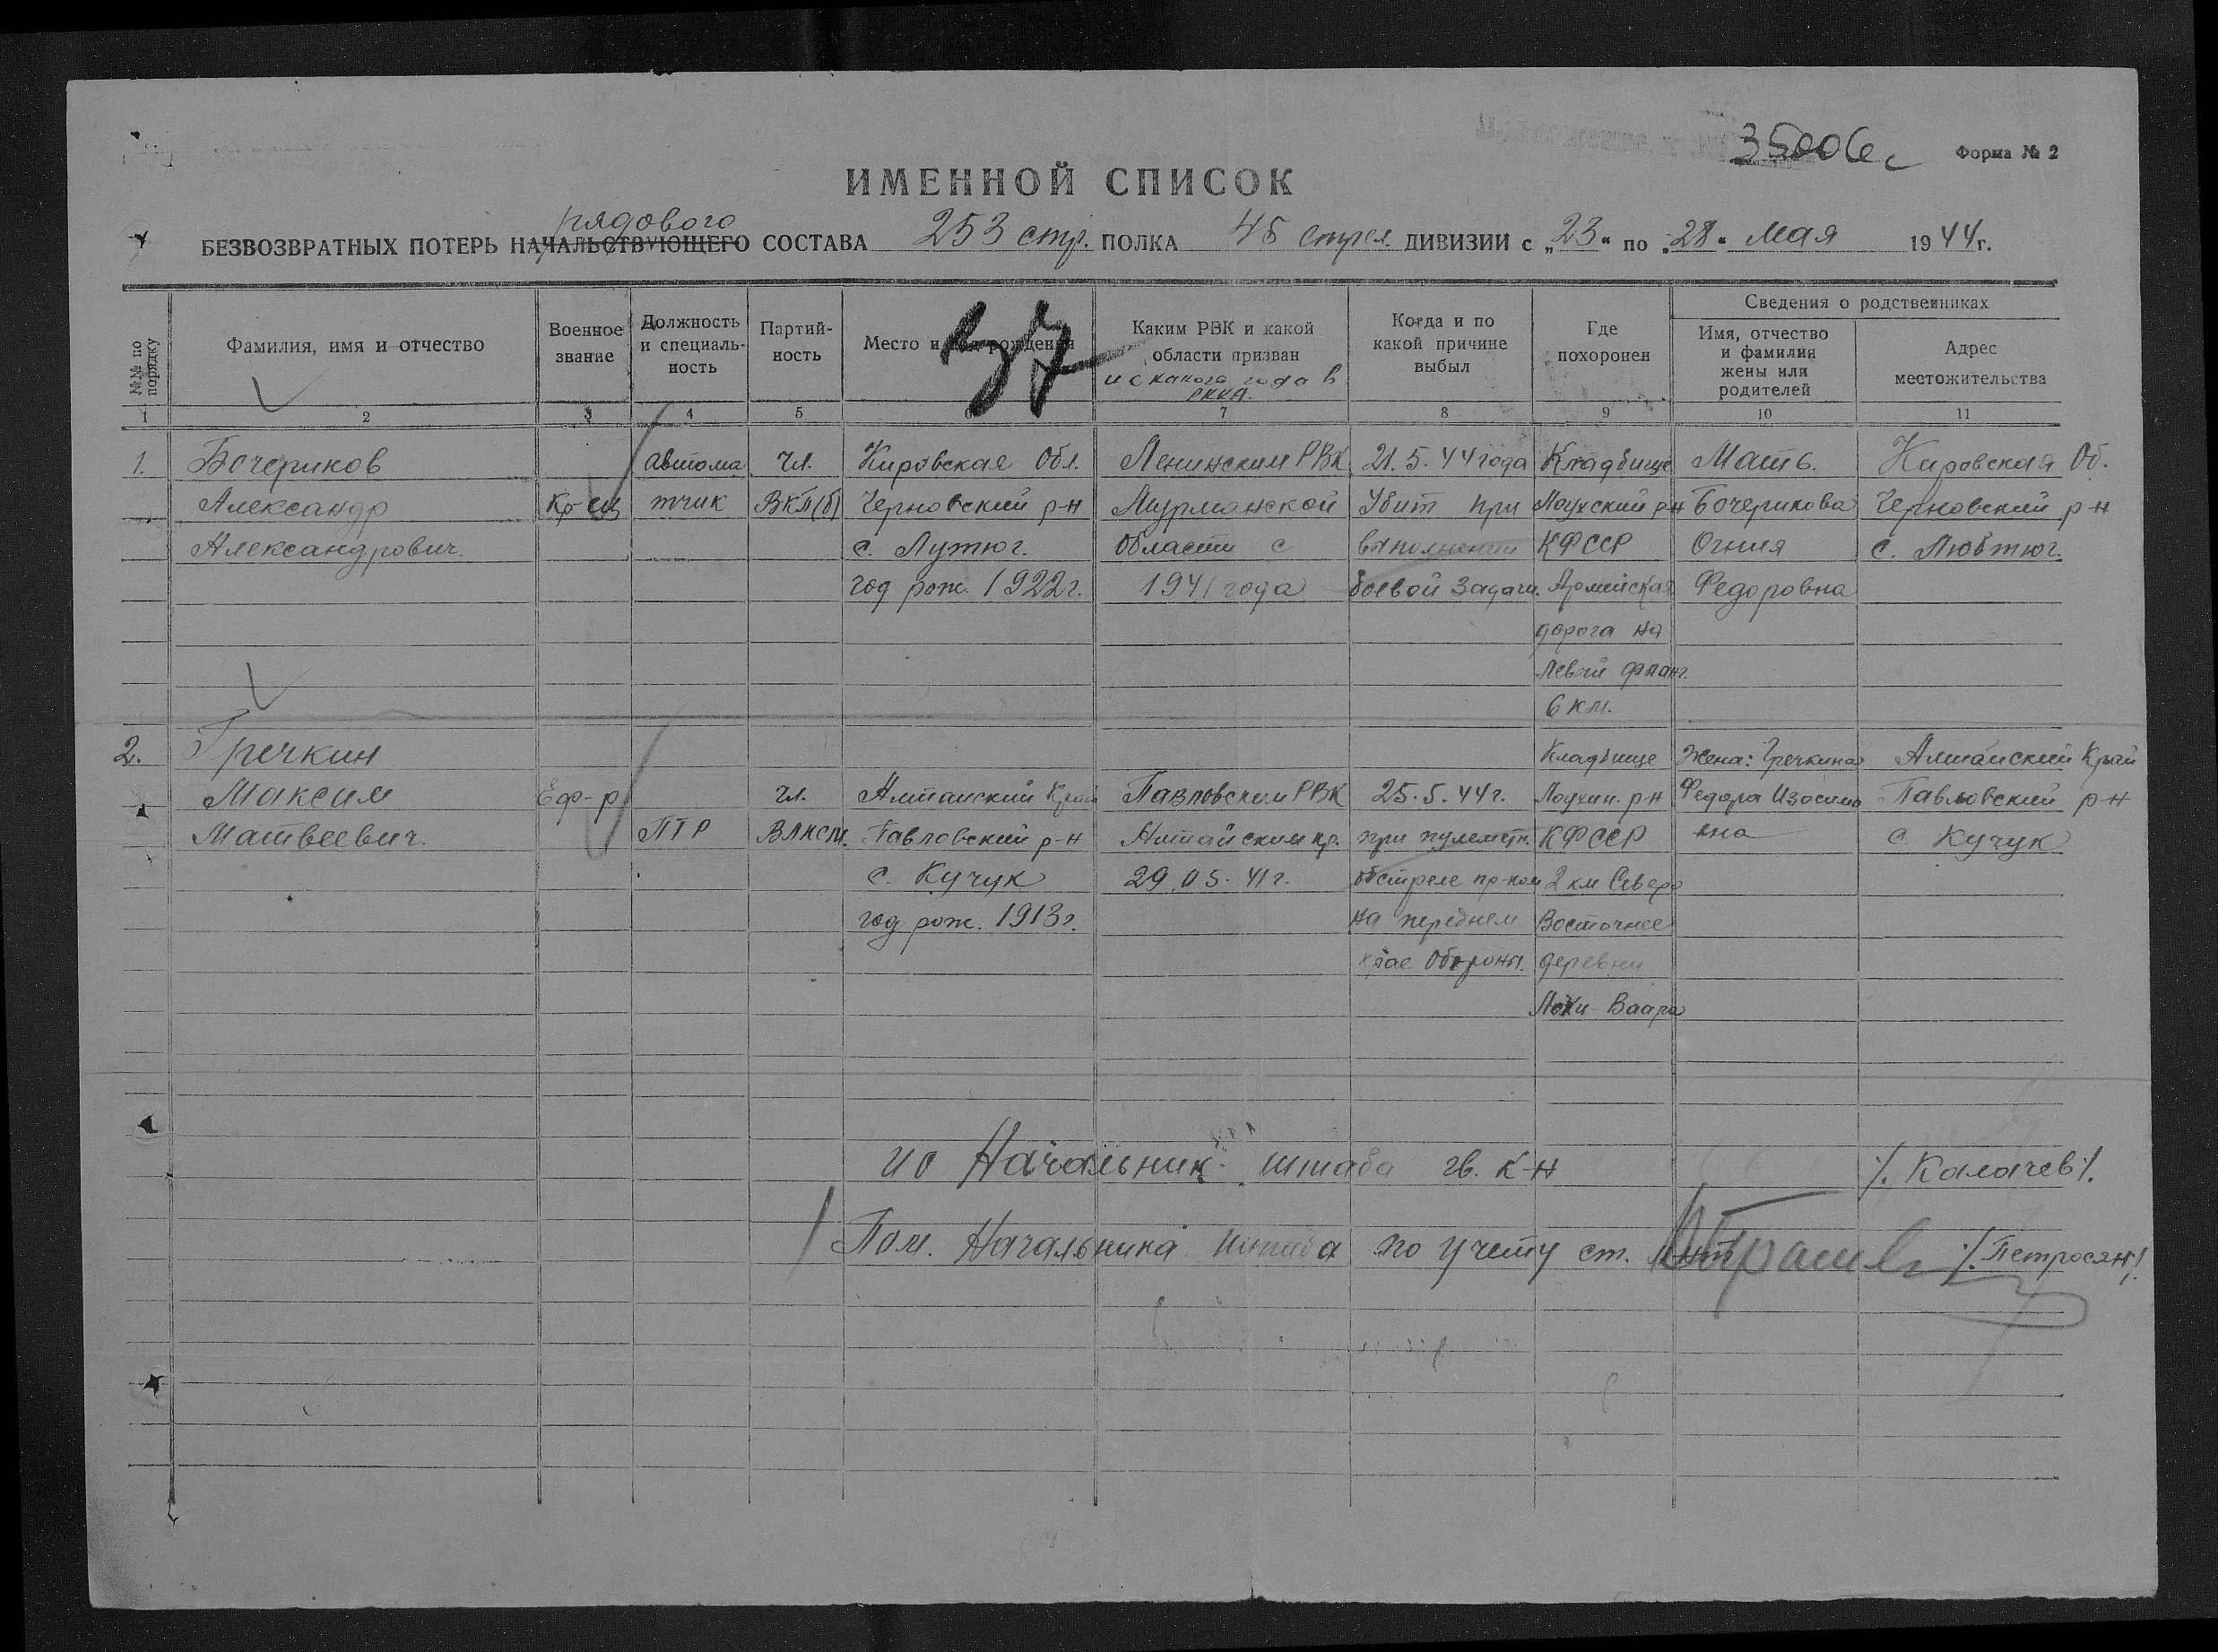 35006с
Форма № 2
ИМЕННОЙ СПИСОК
рядового
БЕЗВОЗВРАТНЫХ ПОТЕРЬ НАЧАЛЬСТВУЮЩЕГО СОСТАВА 253 стр. ПОЛКА 45 стрел. ДИВИЗИИ с „23" по „28" Мая 1944г.
№№ по порядку
Фамилия, имя и отчество
Военное звание
Должность и специальность
Партийность
Место и год рождения
Каким РВК и какой области призван
и с какого года в РККА.
Когда и по какой причине выбыл
Где похоронен
Сведения о родственниках
Имя, отчество и фамилия жены или родителей
Адрес местожительства
1 2 3 4 5 6 7 8 9 10 11
1. Бочериков автома чл. Кировская Обл. Ленинским РВК 21.5.44 года Кладбище Мать. Кировская Об.
Александр Кр-ец тчик ВКП(б) Черновский р-н Мурманской Убит при Лоухский р-н Бочерикова Черновский р-н
Александрович. с. Лутюг. Области с выполнении КФССР Огния с. Любтюг.
год рож. 1922г. 1941 года боевой задачи. Армейская Федоровна
дорога на
левой фланг.
6 км.
2. Гречкин Кладбище Жена: Гречкина Алтайский Край
Максим Еф-р чл. Алтайский Край Павловским РВК 25.5.44г. Лоухин. р-н Федора Изосимо Павловский р-н
Матвеевич. ПТР ВЛКСМ. Павловский р-н Алтайским кр. при пулеметн. КФССР вна с Кучук
с. Кучук 29.05.41г. обстреле пр-ком 2 км Северо
год рож. 1913г. на переднем Восточнее
крае Обороны. деревни
Лохи-Ваара
ио Начальник штаба гв. к-н /. Калачев /.
Пом. Начальника штаба по учету ст. л-нт /. Петросян /.